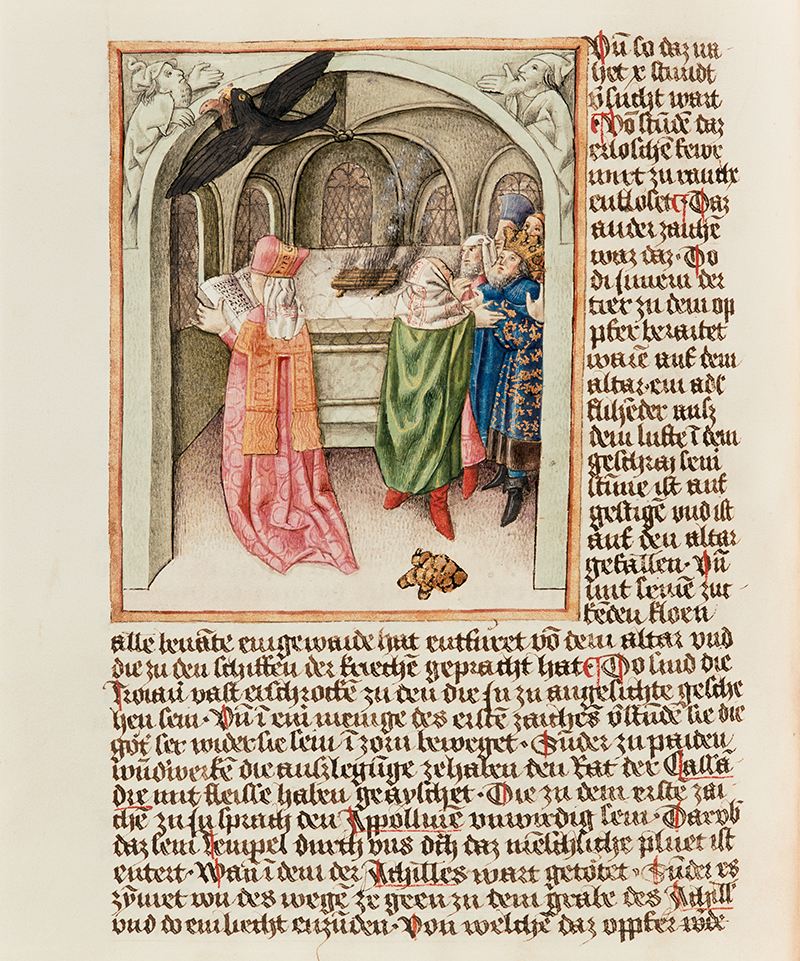 Vñ so daz na
het x stundt
v̄sucht wart
Vō stūde daz
erloschē fewr
mit zu rauche
entloset · Daz
ander zaichē
waz daz · Do
di Innern der
tier zu dem op
pfer beraitet
warē auf dem
altar · ein adl̄
fliehēder ausz
dem lufte ī dem
geschrai sein
stīme ist auf
gestigē vnd ist
auf den altar
gefallen · Vñ
mit seinē zur
keden kloen
alle benāte eingewaide hat entfuret vō dem altar vnd
die zu den schiffen der kriechē gepracht hat · Do sind die
Troiani vast erschrockē zu den die Ju zu angesichte gesche
hen sein · Vñ ī eini meinige des erstē zaichēs v̄stūdē sie die
göt̄ ser wider sie sein ī zorn beweget · Sūder zu paiden
wūdwerkē die auszlegūge zehaben den Rat der Cassā
dre mit fleisse haben geayschet · Die zu dem erste zai
chē zu Ju sprach den Appollinē vnwirdig sein · Darvb̄
daz sein Tempel durch vns dch daz mēschliche pluet ist
entert · Wan ī dem der Achilles wart getötet · Sūder es
zȳmet vn des wegē ze geen zu dem grabe des Achill
vnd do ein liecht enzūden · Von welchē daz oppfer wde